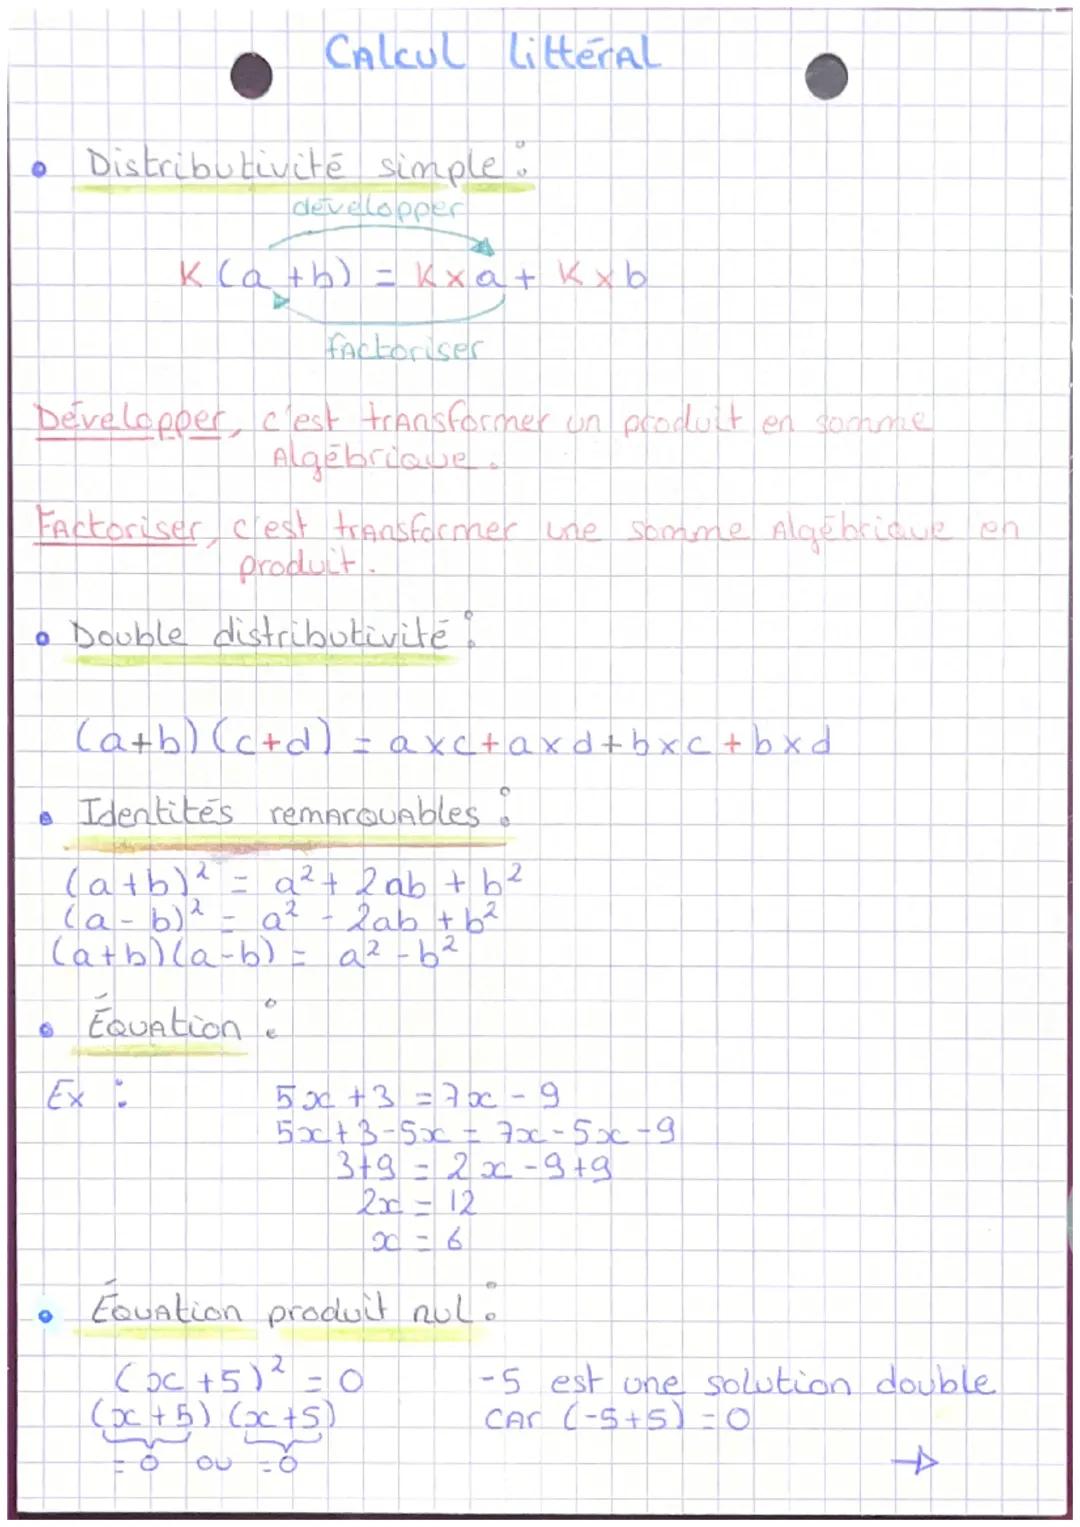 Calcul littéral
• Distributivité simple :
développer
K(a+b) = K×a + K×b
factoriser
Développer, c'est transformer un produit en somme
Algébrique.
Factoriser, c'est transformer une somme Algébrique en
produit.
• Double distributivité :
(a+b)(c+d) = a×c+a×d+b×c+b×d
• Identités remarquables :
(a+b)² = a² + 2ab + b²
(a-b)² = a² - 2ab + b²
(a+b)(a-b) = a² - b²
• Équation :
Ex : 5x+3 = 7x-9
5x+3-5x = 7x-5x-9
3+9 = 2x-9+9
2x = 12
x = 6
• Équation produit nul :
(x+5)² = 0 -5 est une solution double
(x+5)(x+5) car (-5+5) = 0
=0 ou =0
→